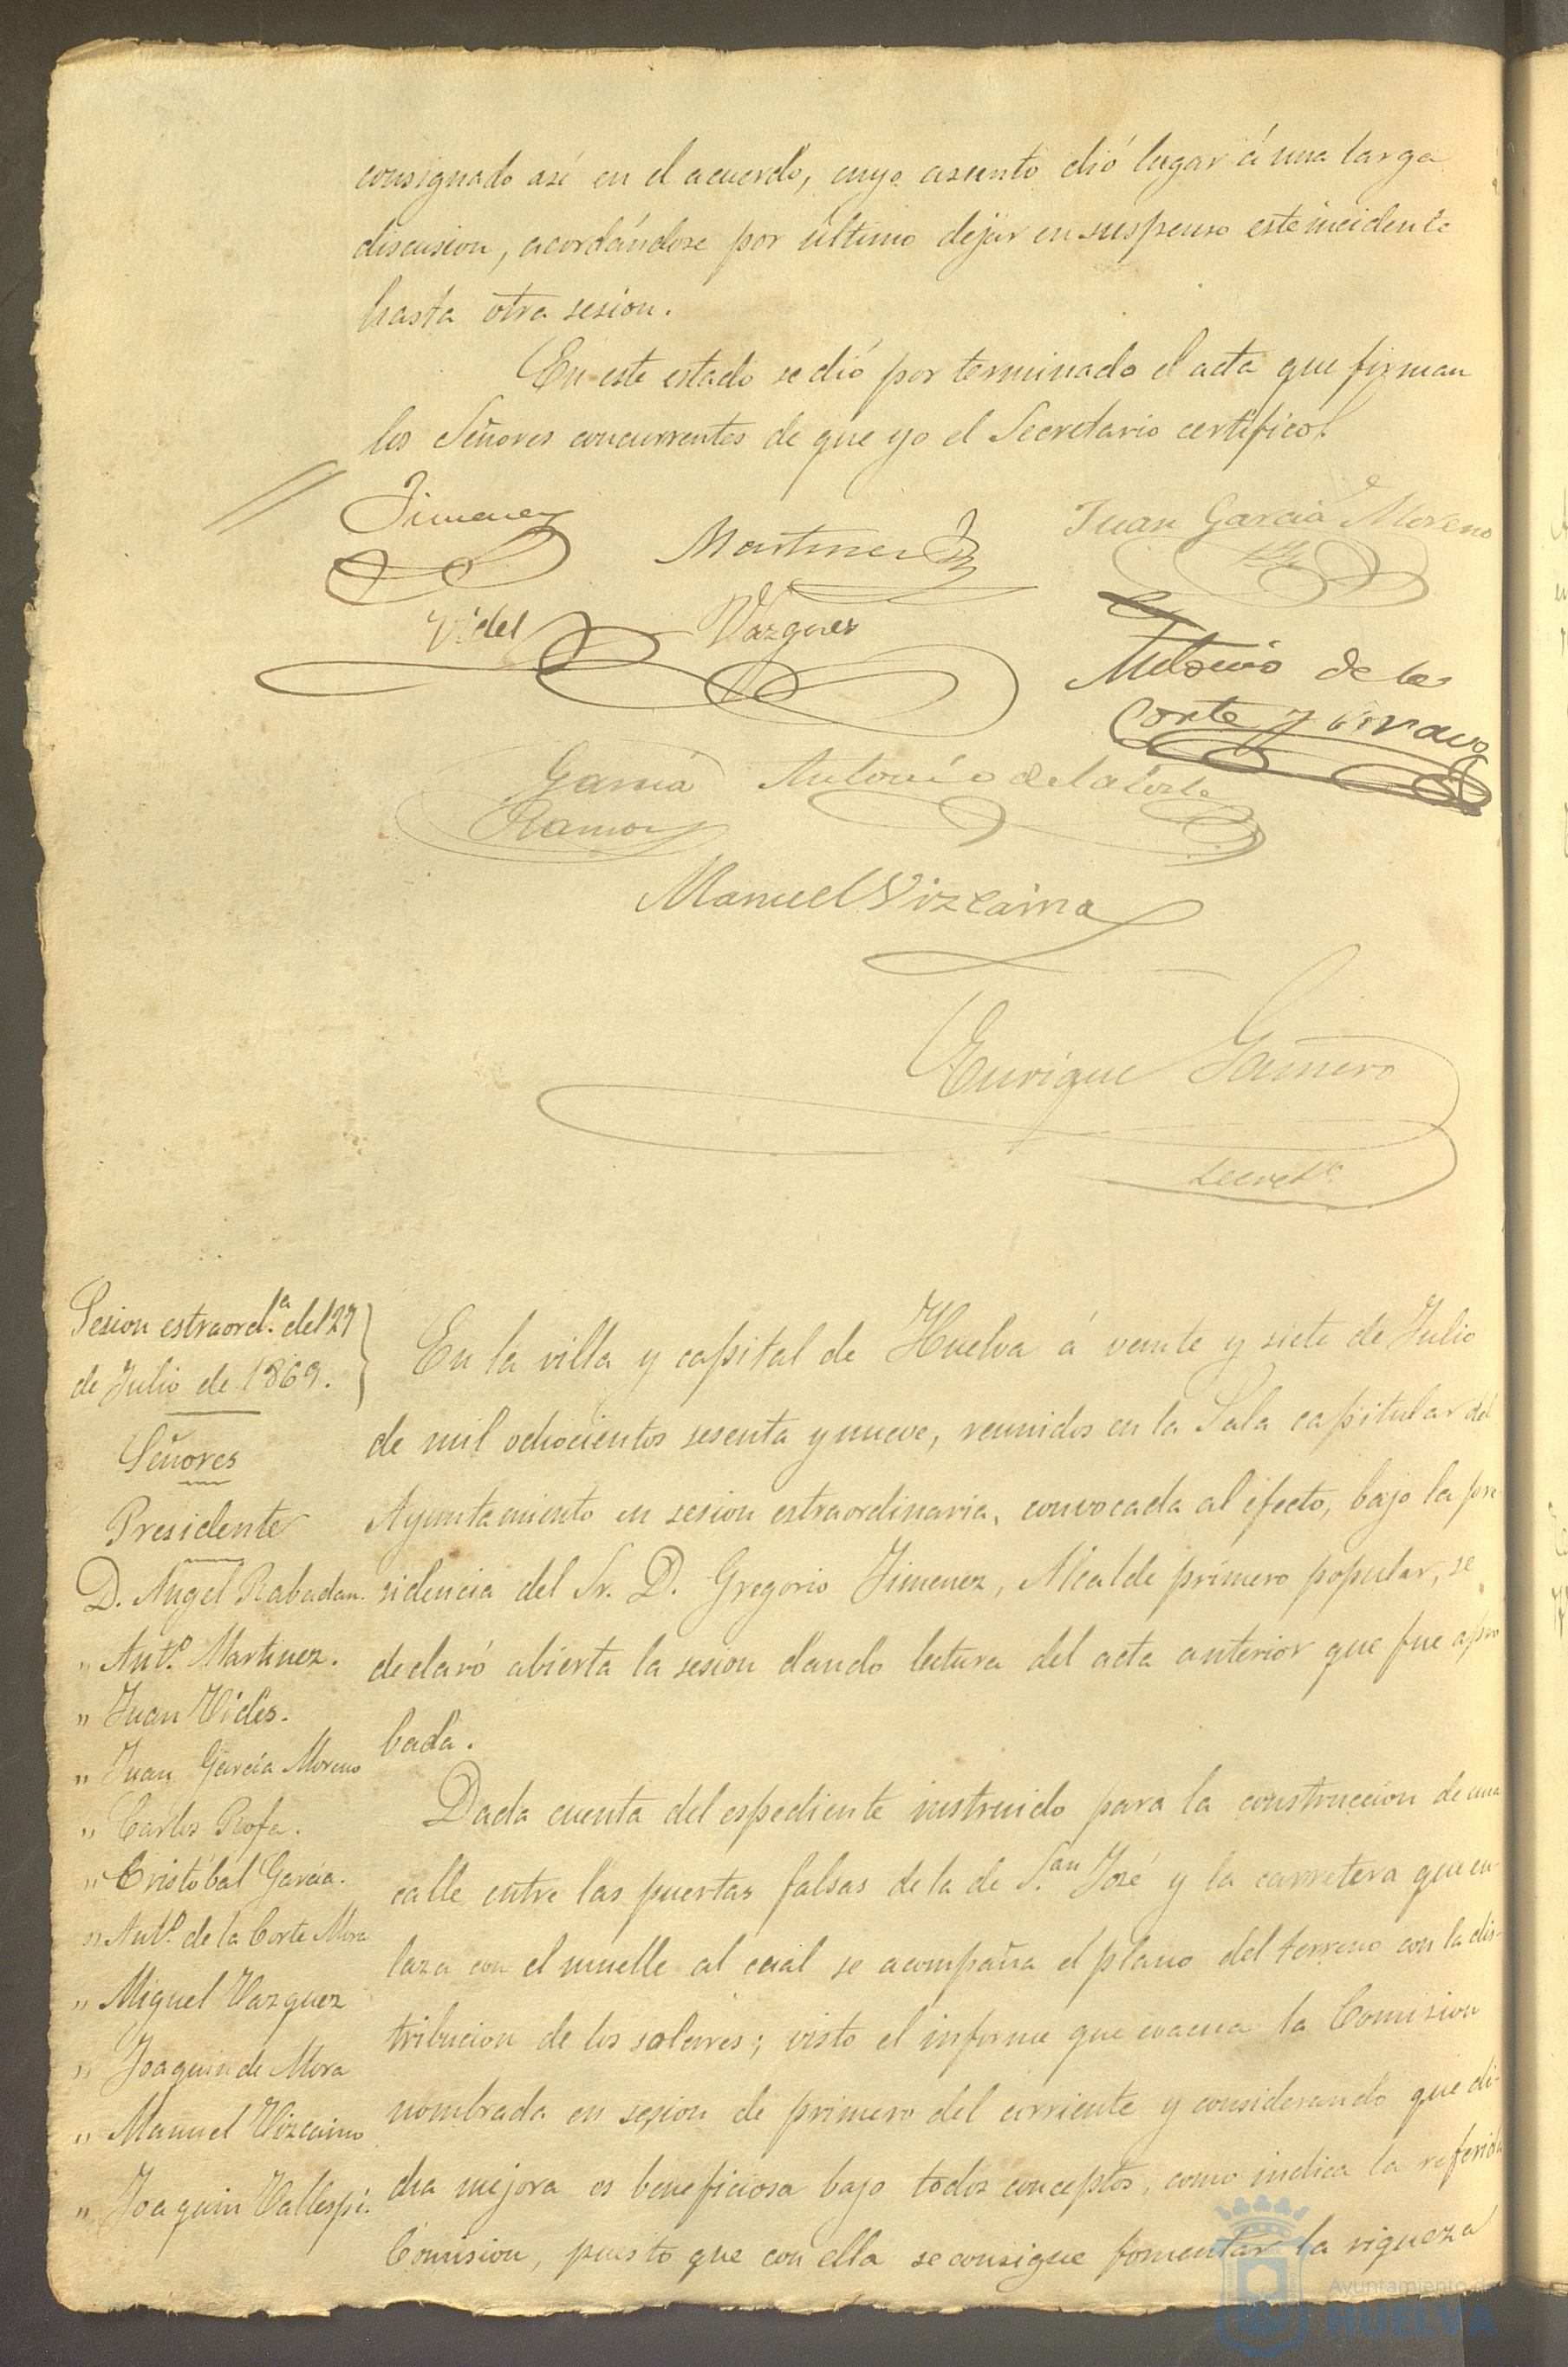 consignado así en el acuerdo, cuyo asunto dió lugar á una larga
discusion, acordándose por último dejar en suspenso este incidente
hasta otra sesion.
En este estado se dió por terminado el acta que firman
los Señores concurrentes de que yo el Secretario certifico.
Jimenez
Martinez
Juan Garcia Moreno
Videl
Vazquez
Antonio de la
Corte y
Garcia
Ramos
Antonio de la Corte
Manuel Vizcaino
Enrique Gañero
Secret.º
Sesion estraord.ª del 27
de Julio de 1869.
Señores
Presidente
D. Angel Rabadan.
" Ant.º Martinez.
" Juan Vides.
" Juan García Moreno
" Carlos Rofa.
" Cristóbal Garcia.
" Ant.º de la Corte Mora
" Miguel Vazquez
" Joaquin de Mora
" Manuel Vizcaino
" Joaquin Vallespi.
En la villa y capital de Huelva á veinte y siete de Julio
de mil ochocientos sesenta y nueve, reunidos en la Sala capitular del
Ayuntamiento en sesion estraordinaria, convocada al efecto, bajo la pre-
sidencia del Sr. D. Gregorio Jimenez, Alcalde primero popular, se
declaró abierta la sesion dando lectura del acta anterior que fue apro
bada.
Dada cuenta del espediente instruido para la construccion de una
calle entre las puertas falsas de la de S.an José y la carretera que en-
laza con el muelle al cual se acompaña el plano del terreno con la dis-
tribucion de los solares; visto el informe que evacua la Comision
nombrada en sesion de primero del corriente y considerando que di-
cha mejora es beneficiosa bajo todos conceptos, como indica la referida
Comision, puesto que con ella se consigue fomentar la riqueza
Ayuntamiento de
HUELVA